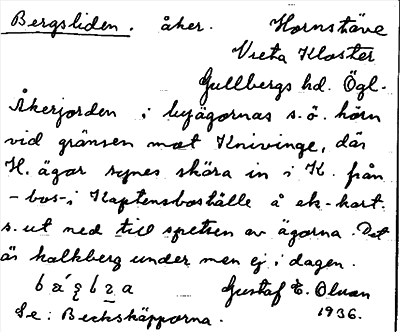 Bergsliden. åker. Hornstäve
Vreta Kloster
Gullbergs hd. Ögl.
Åkerjorden i byägornas s.ö. hörn
vid gränsen mot Knivinge, där
H. ägor synes skära in i K. från
-bos-i Kaptensboställe å ek-kart.
s. ut ned till spetsen av ägorna. Det
är kalkberg under men ej i dagen.
Gustaf E. Olson
Se: Beckskäpporna. 1936.